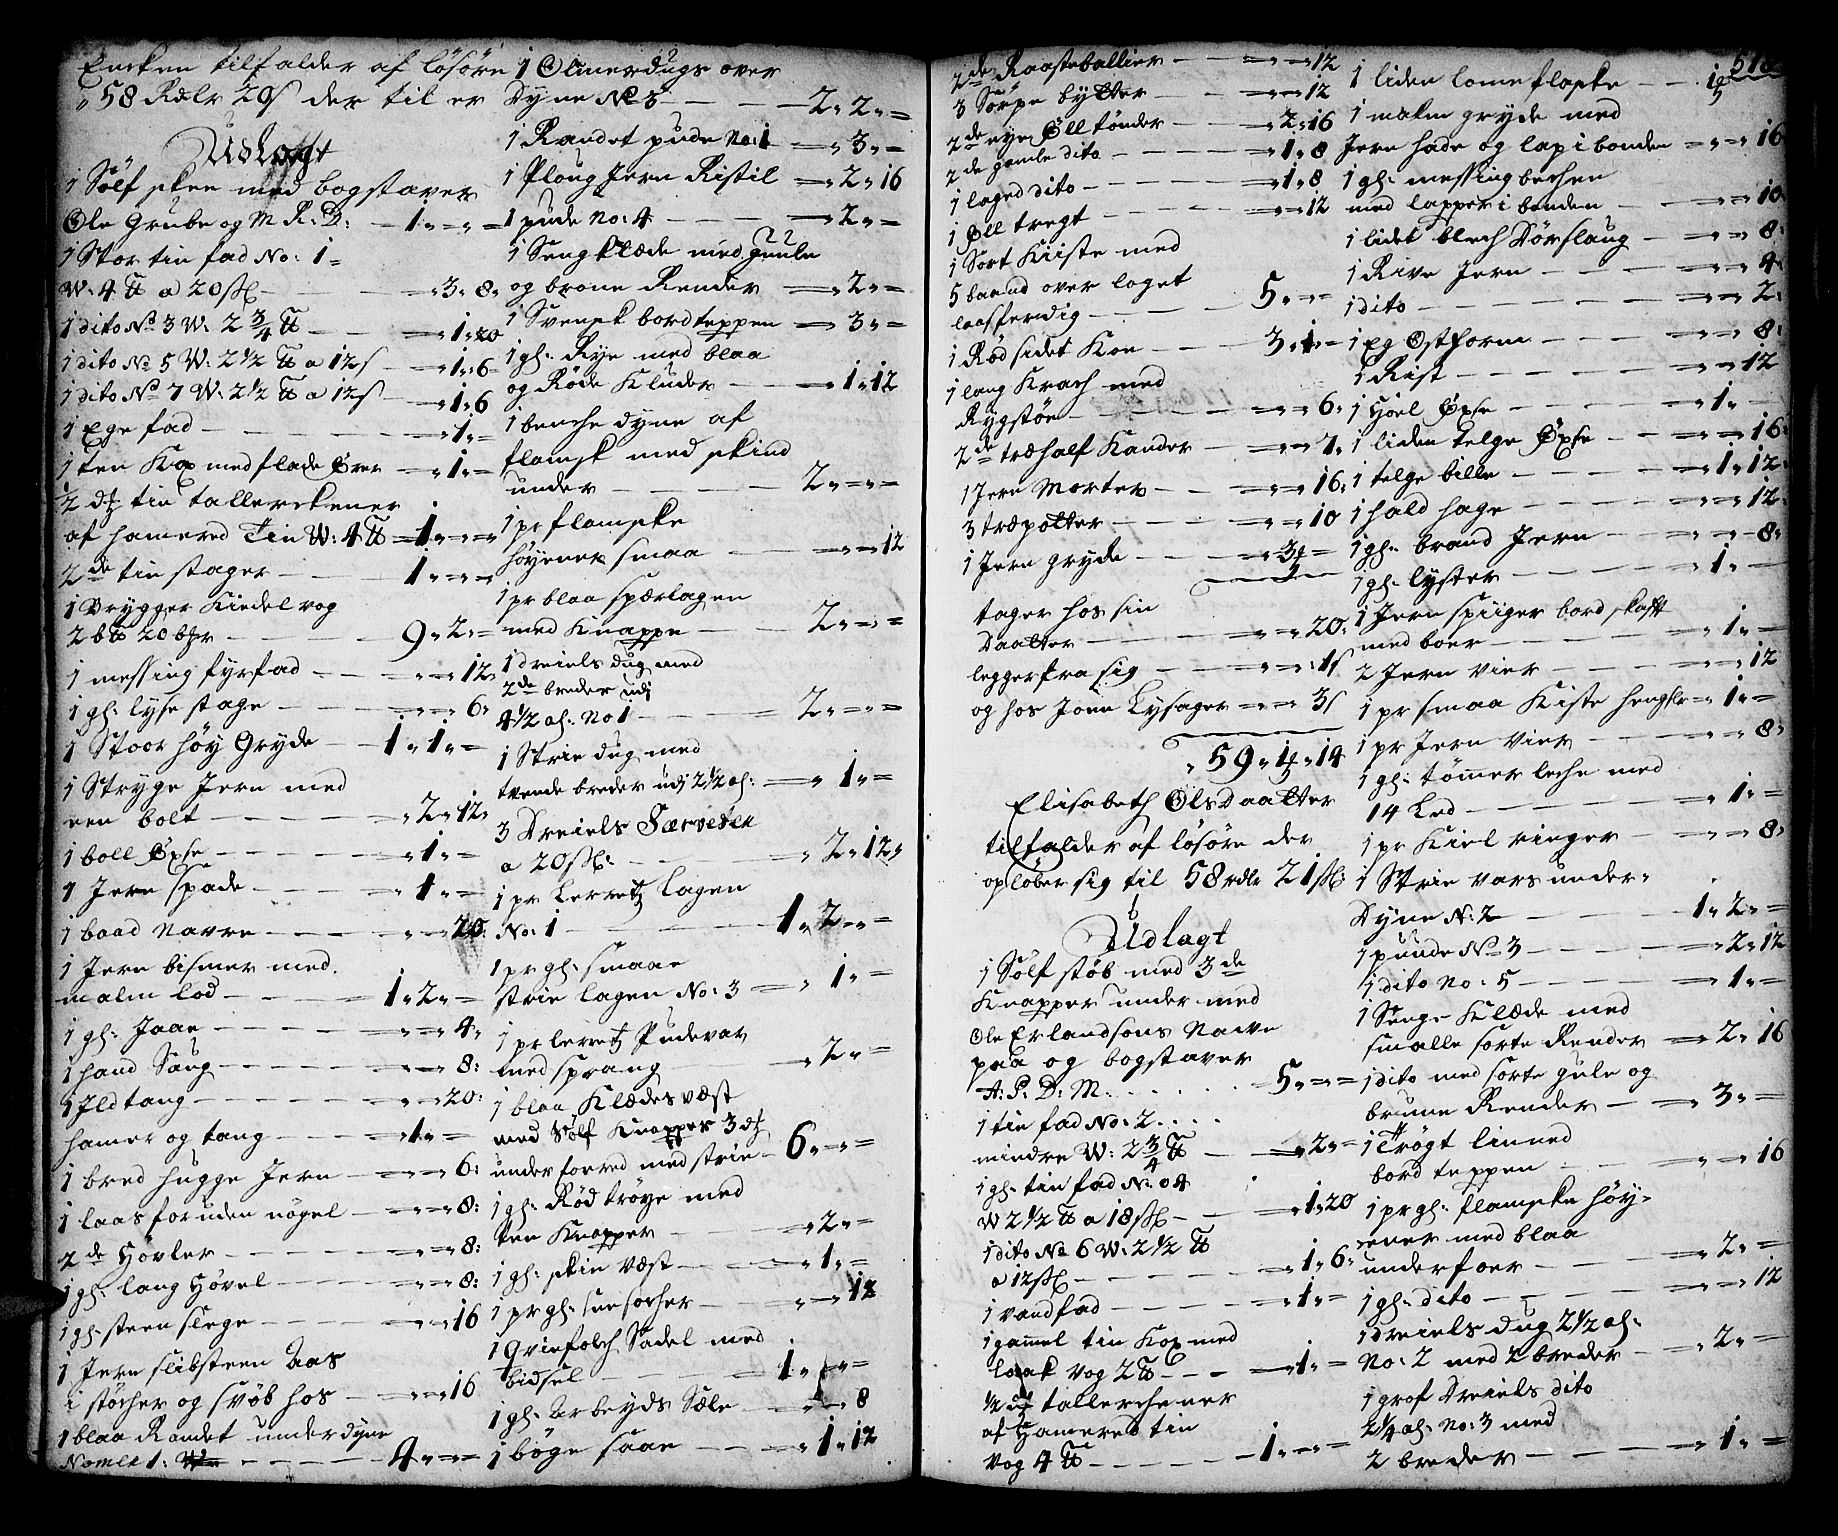 Encken tilfalder af løsøre
58 Rdlr 20s der til er
Udlagt
1 Sølf skee med bogstaver
Ole Grube og M R: D: - 1 " = " =
1 Stor tin fad No: 1 =
W: 4 ℔ a 20 sk - " 3 " 8 "
1 dito No 3 W: 2 3/4 ℔ - = " 1 " 20
1 dito No 5 W: 2 1/2 ℔ a 12 s - " 1 " 6
1 dito No 7 W: 2 1/2 ℔ a 12 s - " 1 " 6
1 Ege fad - " 1 " =
1 ten Kop med flade Ører - " 1 " =
2 dt tin tallerckener
af hamered Tin W: 4 ℔ = 1 " = " =
2de tin stager - 1 " = " =
1 brygger Kiedel vog
- 9 " 2 " =
1 messing fyrfad - " = " 12 "
1 gl: lyse stage - " = " 6 "
1 Stoor høy Gryde - 1 " 1 " =
1 Stryge Jern med
een bolt - " 2 " 12 "
1 boll Øxse - " 1 " =
1 Jern spade - " 1 " =
1 baad Navre - " = " 20 :
1 Jern bismer med
malm lod - = 1 " 2 " =
1 gl: Jaar - = " = " 4 "
1 hand Saug - = " = " 8 :
1 Ildtang - = " = " 20 :
hamer og tang - = " 1 " =
1 bred hugge Jern - = " = " 6 :
1 laas foruden nøgel - = " = " 8 :
2de Høvler - = " = " 8 :
1 gl: lang Høvel - = " = " 8 :
1 gl: steen slege - " = " 16
1 Jern slibsteen Aas
i støcher og svøb hos - = " = " 16
1 blaa Randet underdyne
1: - 4 " = " =
1 Olmerdugs over
Dyne No 3 - 2 " 2 " =
1 Randet pude No: 1 - = " 3 " =
1 Ploug Jern Ristil - = " 2 " 16
1 pude No: 4 - " 2 " =
1 Sengklæde med guule
og brone Render - = " 2 " =
1 Svensk bordteppen - = " 3 " =
1 gl: Rye med blaa
og Røde Kluder - = " 1 " 12
1 benche dyne af
flamsk med skind
under - 2 " = " =
1 pr flamske
høyener smaa - = " = " 12
1 pr blaa spærlagen
med Knappe - 2 " = " =
1 dreiels dug med
2de breder udj
4 1/2 al: No 1 - 2 " = " =
1 Strie dug med
tvende breder udj 2 1/2 al: = " 1 " =
3 Dreiels Særveter
a 20 sk: - " 2 " 12 "
1 pr Lerretz lagen
No: 1 - 1 " 2 " =
1 pr gl: smaae
strie lagen No: 3 - " 1 " =
1 pr lerretz Pudevar
med sprang - " 2 " =
1 blaa Klædes væst
med Sølf Knapper 3 dt
under forred med strie - 6 " = " =
1 gl: Rød trøye med
ten Knapper - " 2 " =
1 gl: skin væst - " 1 " =
1 pr gl: - " = " 12
1 qvinfolch Sadel med
bidsel - 1 " = " =
1 gl: Arbeyds Sæle - " = " 8
1 bøge saae - " 1 " 12
2de Raasteballier - = " = " 12
3 Sørpe bytter - = " = " 12
2de eye Øll tønder - = " 2 " 16
2de gamle dito - = " 1 " 8
1 laged dito - = " 1 " 8
1 Øll tregt - = " = " 12
1 Sort Kiiste med
5 baand over laget
laasferdig - 5 " = " =
1 Rød sidet Koe - 3 " 1 " =
1 lang Krach med
Rygstøe - = " = " 6 "
2de træ half Kander - = " = " 7 "
1 Jern Morter - = " = " 16 :
3 træpotter - = " = " 10
1 Jern gryde - = " 3 " =
tager hos sin
Daatter - = " = " 20 :
legger fra sig - = " = " 1 s
og hos Joen Lysager = " = " 3 s
" 59 " 1 " 14
Elisabeth Olsdaatter
tilfalder af løsøre der
opløber sig til 58 rdlr 21 sk:
Udlagt
1 Sølf støb med 3de
Knapper under med
Ole Erlandsons Navne
paa og bogstaver
A: P: D: M. - 5 " = " =
1 tin fad No: 2 . . .
mindre W: 2 3/4 ℔ - = " 2 " =
1 gl: tin fad No: 4
W 2 1/2 ℔ a 18 sk - = " 1 " 20
1 dito No 6 W: 2 1/2 ℔
a 12 sk - = " 1 " 6 "
1 vandfad - = " 1 " =
1 gammel tin Kop med
laak vog 2 ℔ - = " 1 " =
1/2 dt tallerchener
af Hameret tin
vog 4 ℔ - 1 " = " =
518
1 liden lomeflaske -
1 malm gryde med
Jern hade og lap i bonden = " = " 16
1 gl: messing bechen
med lapper i bonden - = " = " 10
1 lidet blech Dørslaug - = " = " 8 :
1 Rive Jern - = " = " 4 :
1 dito - = " = " 2 :
1 eg Ostform - = " = " 8 :
1 Rist - = " = " 12
1 Høel Øxse - = " 1 " =
1 liden telge Øxse - = " = " 16 :
1 telge bille - = " 1 " 12 :
1 hald hage - = " = " 12 :
1 gl: brand Jern - = " = " 8 "
1 gl: lyster - = " 1 " =
1 Jern spiiger bord skafft
med boer - = " 1 " =
2 Jern Vier - = " = " 12
1 pr smaa Kiste hengsler = " 1 " =
1 pr Jern Vier - = " = " 8 "
1 gl: tømmer leche med
14 Led - = " 1 " =
1 pr Kiel ringer - = " = " 8 "
1 Strie vars under
Dyne No: 2 - 1 " 2 " =
1 puude No 3 - = " 2 " 12
1 dito No: 5 - = " 1 " =
1 Senge Klæde med
smalle sorte Render - = " 2 " 16
1 dito med sorte gule og
brune Render - = " 3 " =
1 Trøgt linned
bord teppen - = " = " 16
1 pr gl: flamske høy-
ener med blaa
underfoer - = " 2 " =
1 gl: dito - = " = " 12
1 dreiels dug 2 1/2 al:
No: 2 med 2 breder - = " 2 " =
1 grof Dreiels dito
2 1/4 al: No: 3 med
2 breder - = " 1 " =